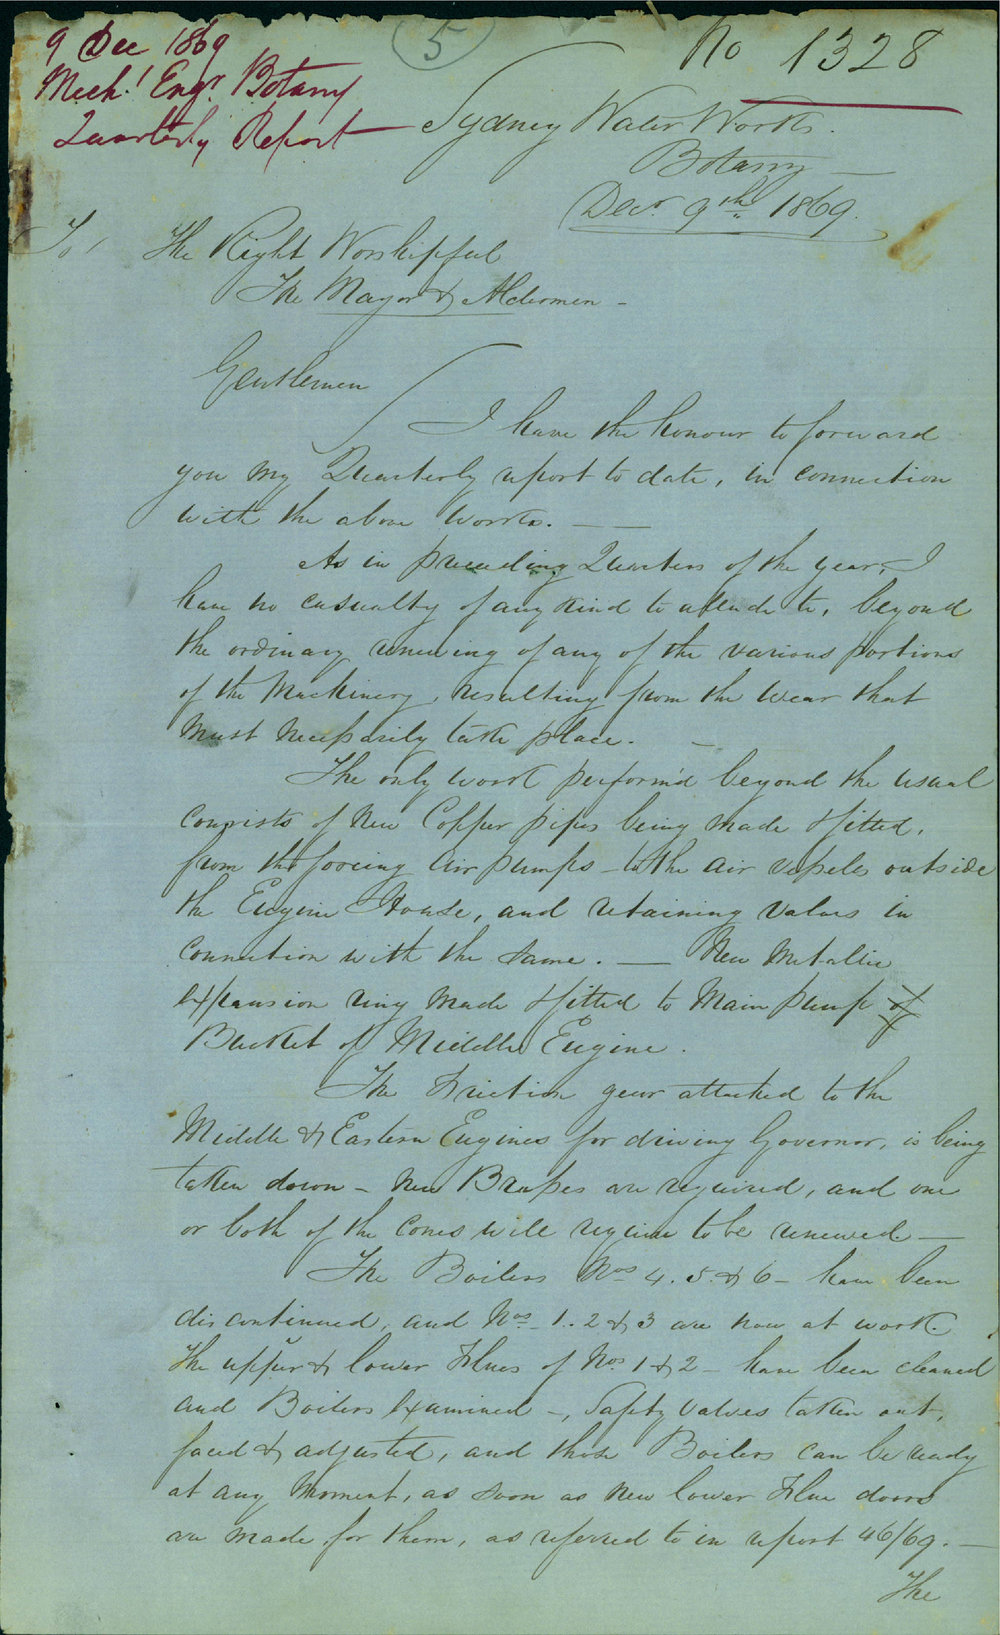 9 Dec 1869
Mech.l Engr. Botany
Quarterly Report
5
No 1328
Sydney Water Works.
Botany —
Decr. 9th 1869.
To, The Right Worshipful
The Mayor & Aldermen -
Gentlemen
I have the honour to forward
you my Quarterly report to date, in connection
with the above Works. —
As in preceeding Quarters of the year, I
have no casualty of any kind to attende to, beyond
the ordinary renewing of any of the various portions
of the Machinery, resulting from the wear that
must necessarily take place. —
The only work perform'd beyond the usual
consists of New Copper pipes being made & fitted,
from the forcing Air pumps - to the air vessels outside
the Engine House, and retaining valves in
connection with the same. — New Metallic
expansion ring made & fitted to Main pump of
Bucket of Middle Engine.
The Friction gear attached to the
Middle & Eastern Engines for driving Governor, is being
taken down - new Brasses are required, and one
or both of the cones will require to be renewed —
The Boilers Nos 4. 5. & 6 - have been
discontinued, and Nos. 1. 2 & 3 are now at work.
The upper & lower Flues of Nos. 1 & 2 - have been cleaned
and Boilers examined -, Safety Valves taken out,
faced & adjusted, and those Boilers can be ready
at any moment, as soon as new lower Flue doors
are made for them, as referred to in report 46/69. —
The